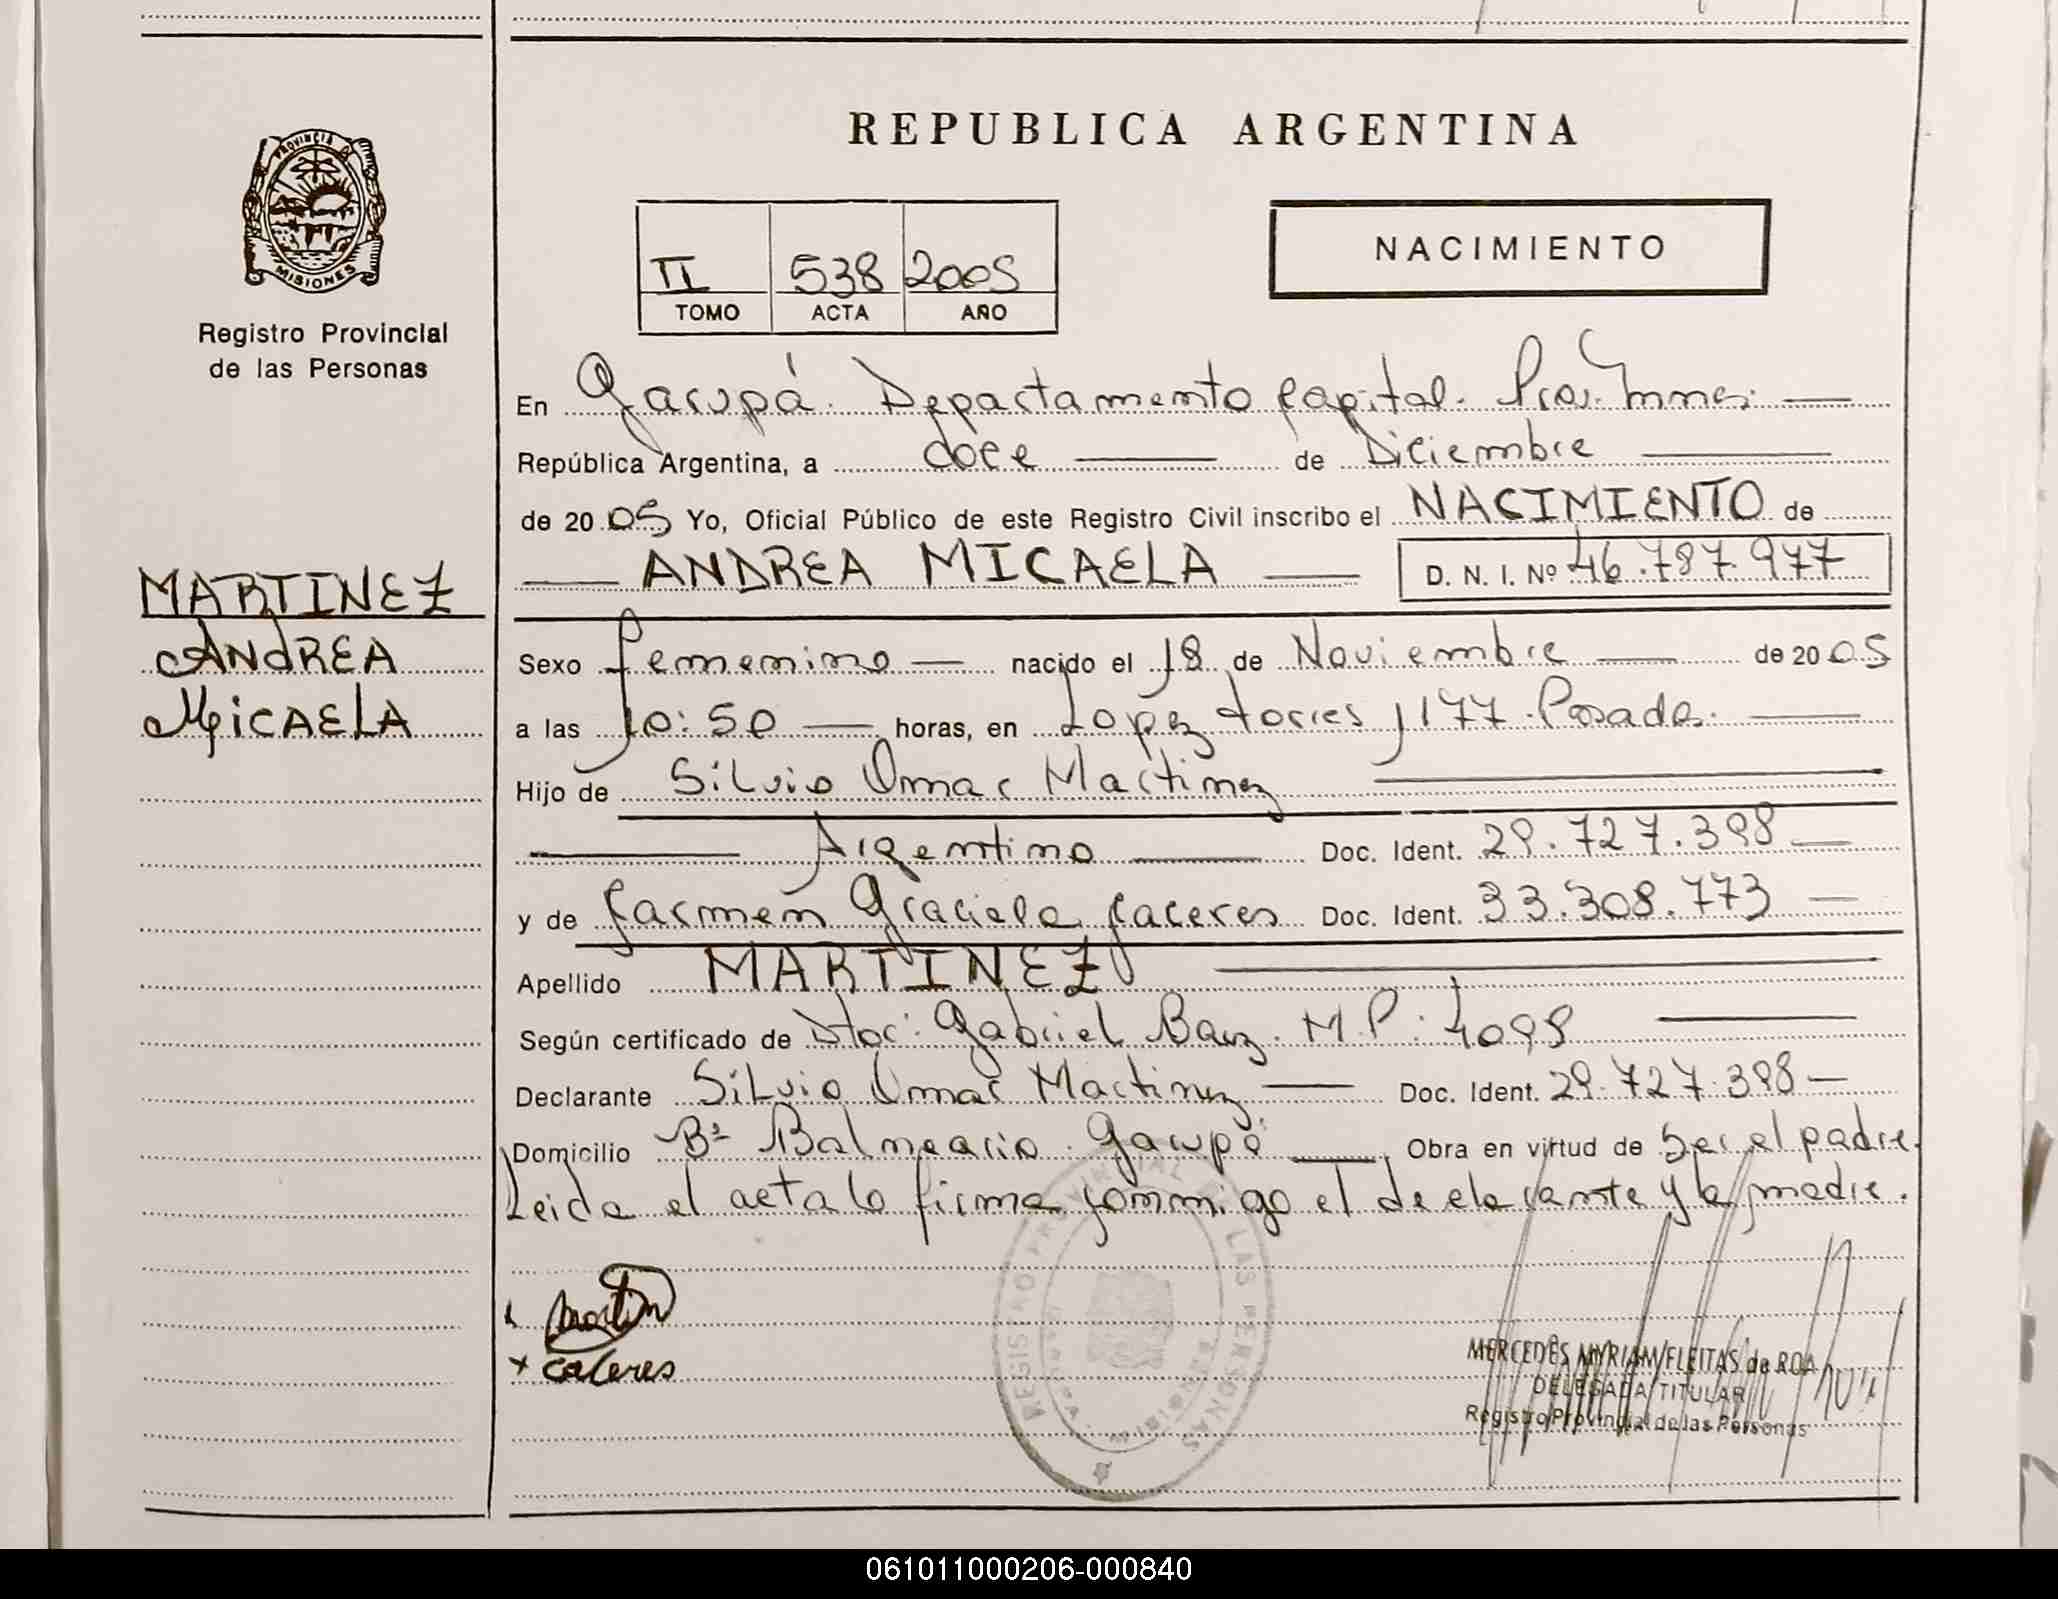 REPUBLICA ARGENTINA
PROVINCIA DE
MISIONES
Registro Provincial
de las Personas
II 538 2005
TOMO ACTA AÑO
NACIMIENTO
En Garupá. Departamento Capital. Prov. Mnes.
República Argentina, a doce de Diciembre
de 2005 Yo, Oficial Público de este Registro Civil inscribo el NACIMIENTO de
ANDREA MICAELA D. N. I. Nº 46.787.977
MARTINEZ
ANDREA
MICAELA
Sexo femenino nacido el 18 de Noviembre de 2005
a las 10:50 horas, en Lopez torres 1177. Posadas.
Hijo de Silvio Omar Martinez
Argentino Doc. Ident. 29.727.398
y de Carmen Graciela Caceres Doc. Ident. 33.308.773
Apellido MARTINEZ
Según certificado de Dtor: Gabriel Baez. M.P: 4098
Declarante Silvio Omar Martinez Doc. Ident. 29.727.398
Domicilio Bº Balneario. Garupá Obra en virtud de Ser el padre.
Leida el acta lo firma conmigo el declarante y la madre.
Martin
x caceres
REGISTRO PROVINCIAL DE LAS PERSONAS
MERCEDES MYRIAM FLEITAS de ROA
DELEGADA TITULAR
Registro Provincial de las Personas
061011000206-000840